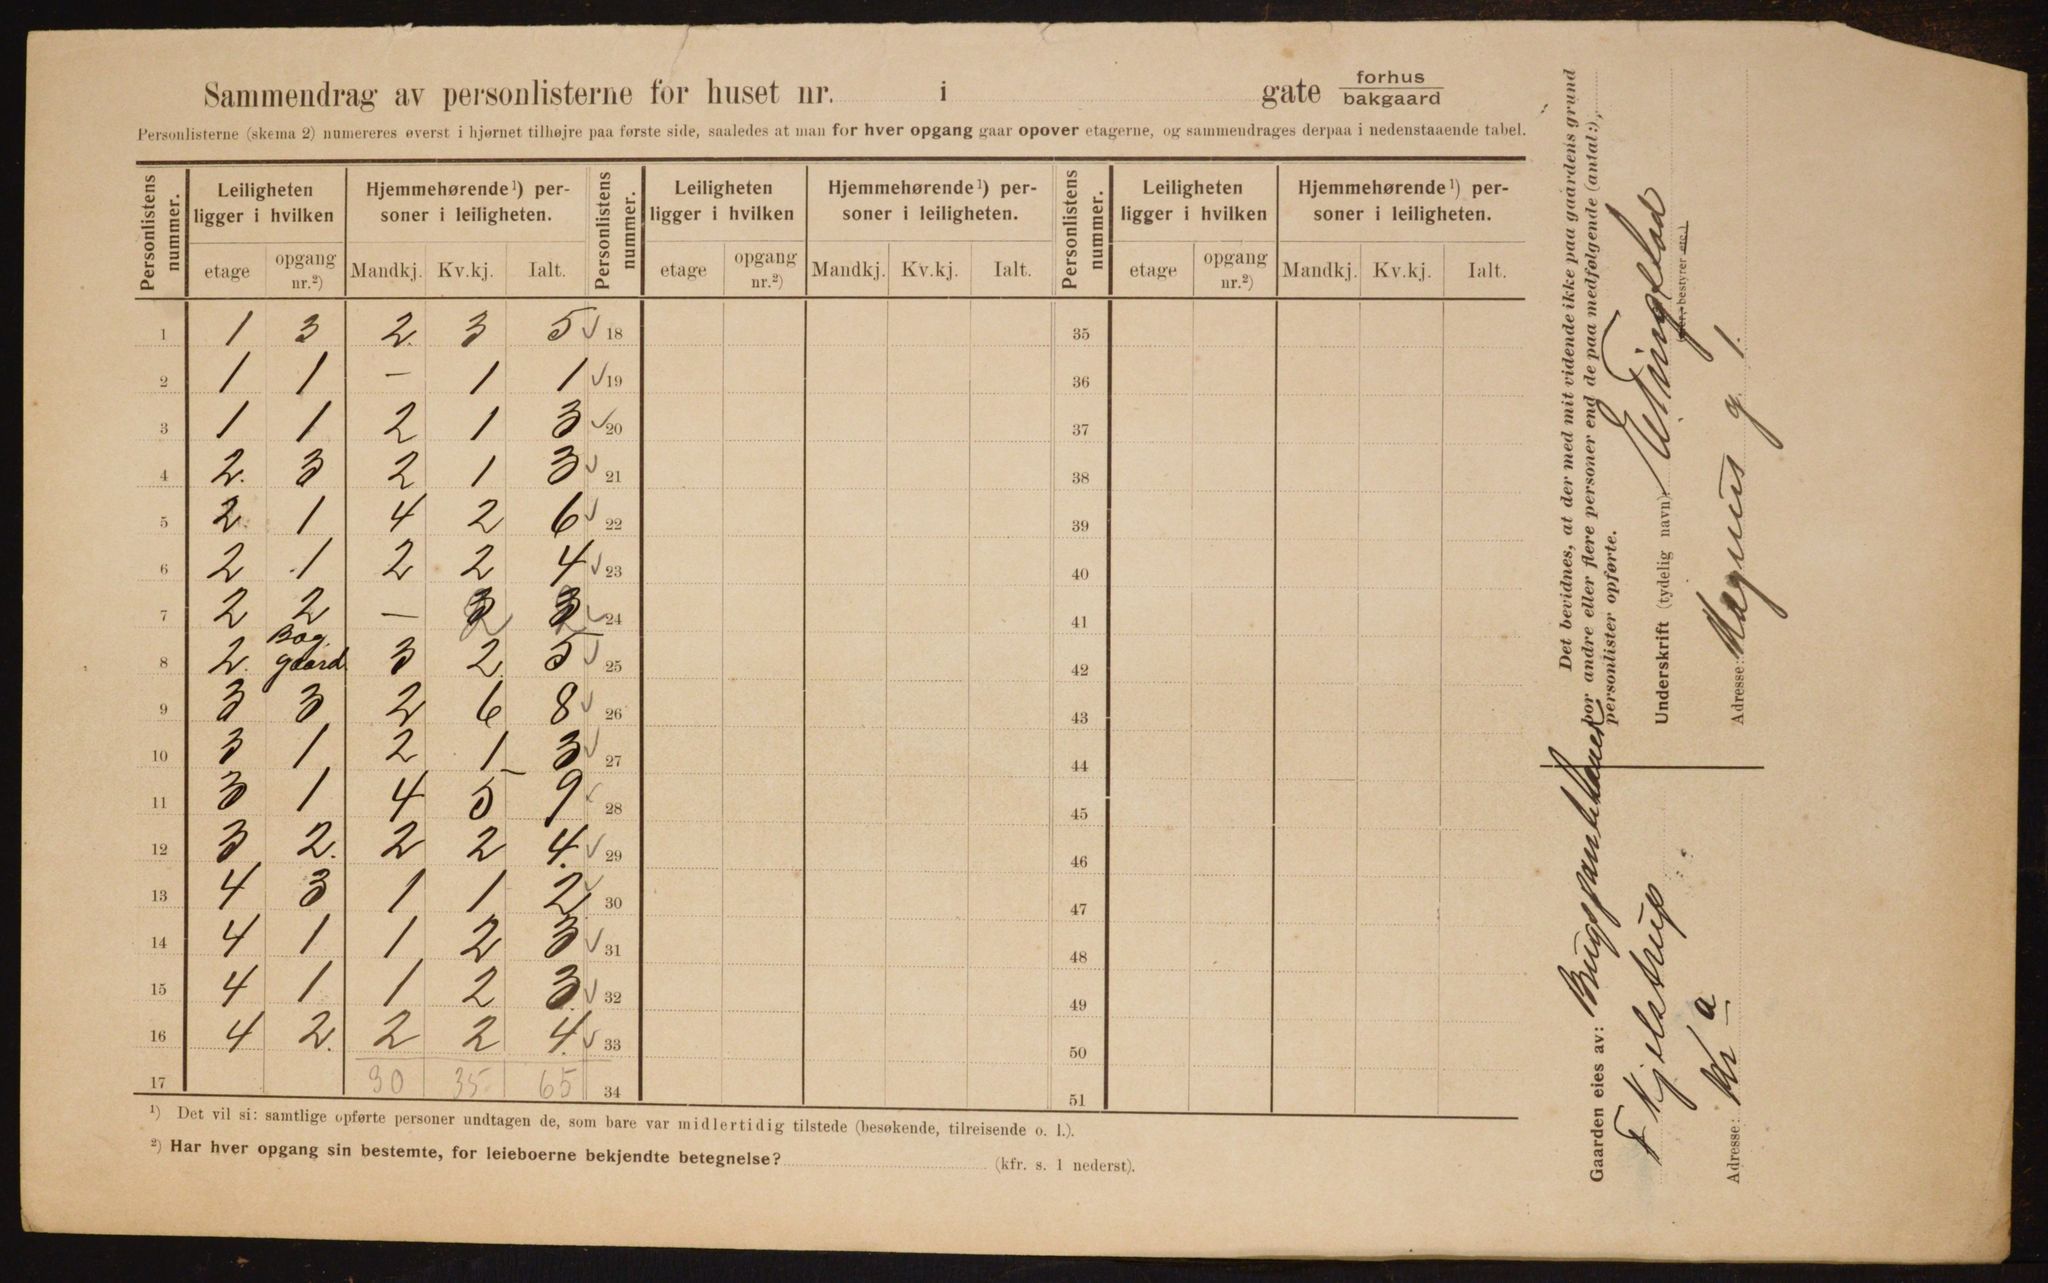 Sammendrag av personlisterne for huset nr. i gate forhus
bakgaard
Personlisterne (skema 2) numereres øverst i hjørnet tilhøjre paa første side, saaledes at man for hver opgang gaar opover etagerne, og sammendrages derpaa i nedenstaaende tabel.
Personlistens nummer. Leiligheten ligger i hvilken Hjemmehørende ¹) personer i leiligheten. Personlistens nummer. Leiligheten ligger i hvilken Hjemmehørende ¹) personer i leiligheten. Personlistens nummer. Leiligheten ligger i hvilken Hjemmehørende ¹) personer i leiligheten.
etage opgang nr.²) Mandkj. Kv.kj. Ialt. etage opgang nr.²) Mandkj. Kv.kj. Ialt. etage opgang nr.²) Mandkj. Kv.kj. Ialt.
1 1 3 2 3 5 18 35
2 1 1 – 1 1 19 36
3 1 1 2 1 3 20 37
4 2 3 2 1 3 21 38
5 2 1 4 2 6 22 39
6 2 1 2 2 4 23 40
7 2 2 – 2 2 24 41
8 2 Bag gaard 3 2 5 25 42
9 3 3 2 6 8 26 43
10 3 1 2 1 3 27 44
11 3 1 4 5 9 28 45
12 3 2 2 2 4 29 46
13 4 3 1 1 2 30 47
14 4 1 1 2 3 31 48
15 4 1 1 2 3 32 49
16 4 2 2 2 4 33 50
17 30 35 65 34 51
¹) Det vil si: samtlige opførte personer undtagen de, som bare var midlertidig tilstede (besøkende, tilreisende o. l.).
²) Har hver opgang sin bestemte, for leieboerne bekjendte betegnelse? (kfr. s. 1 nederst).
Det bevidnes, at der med mit vidende ikke paa gaardens grund
bor andre eller flere personer end de paa medfølgende (antal:)
personlister opførte.
Underskrift (tydelig navn):
(eier, bestyrer etc.)
Adresse: Magnus g 1.
Gaarden eies av:
F Kjelstrup
Adresse: Kr a